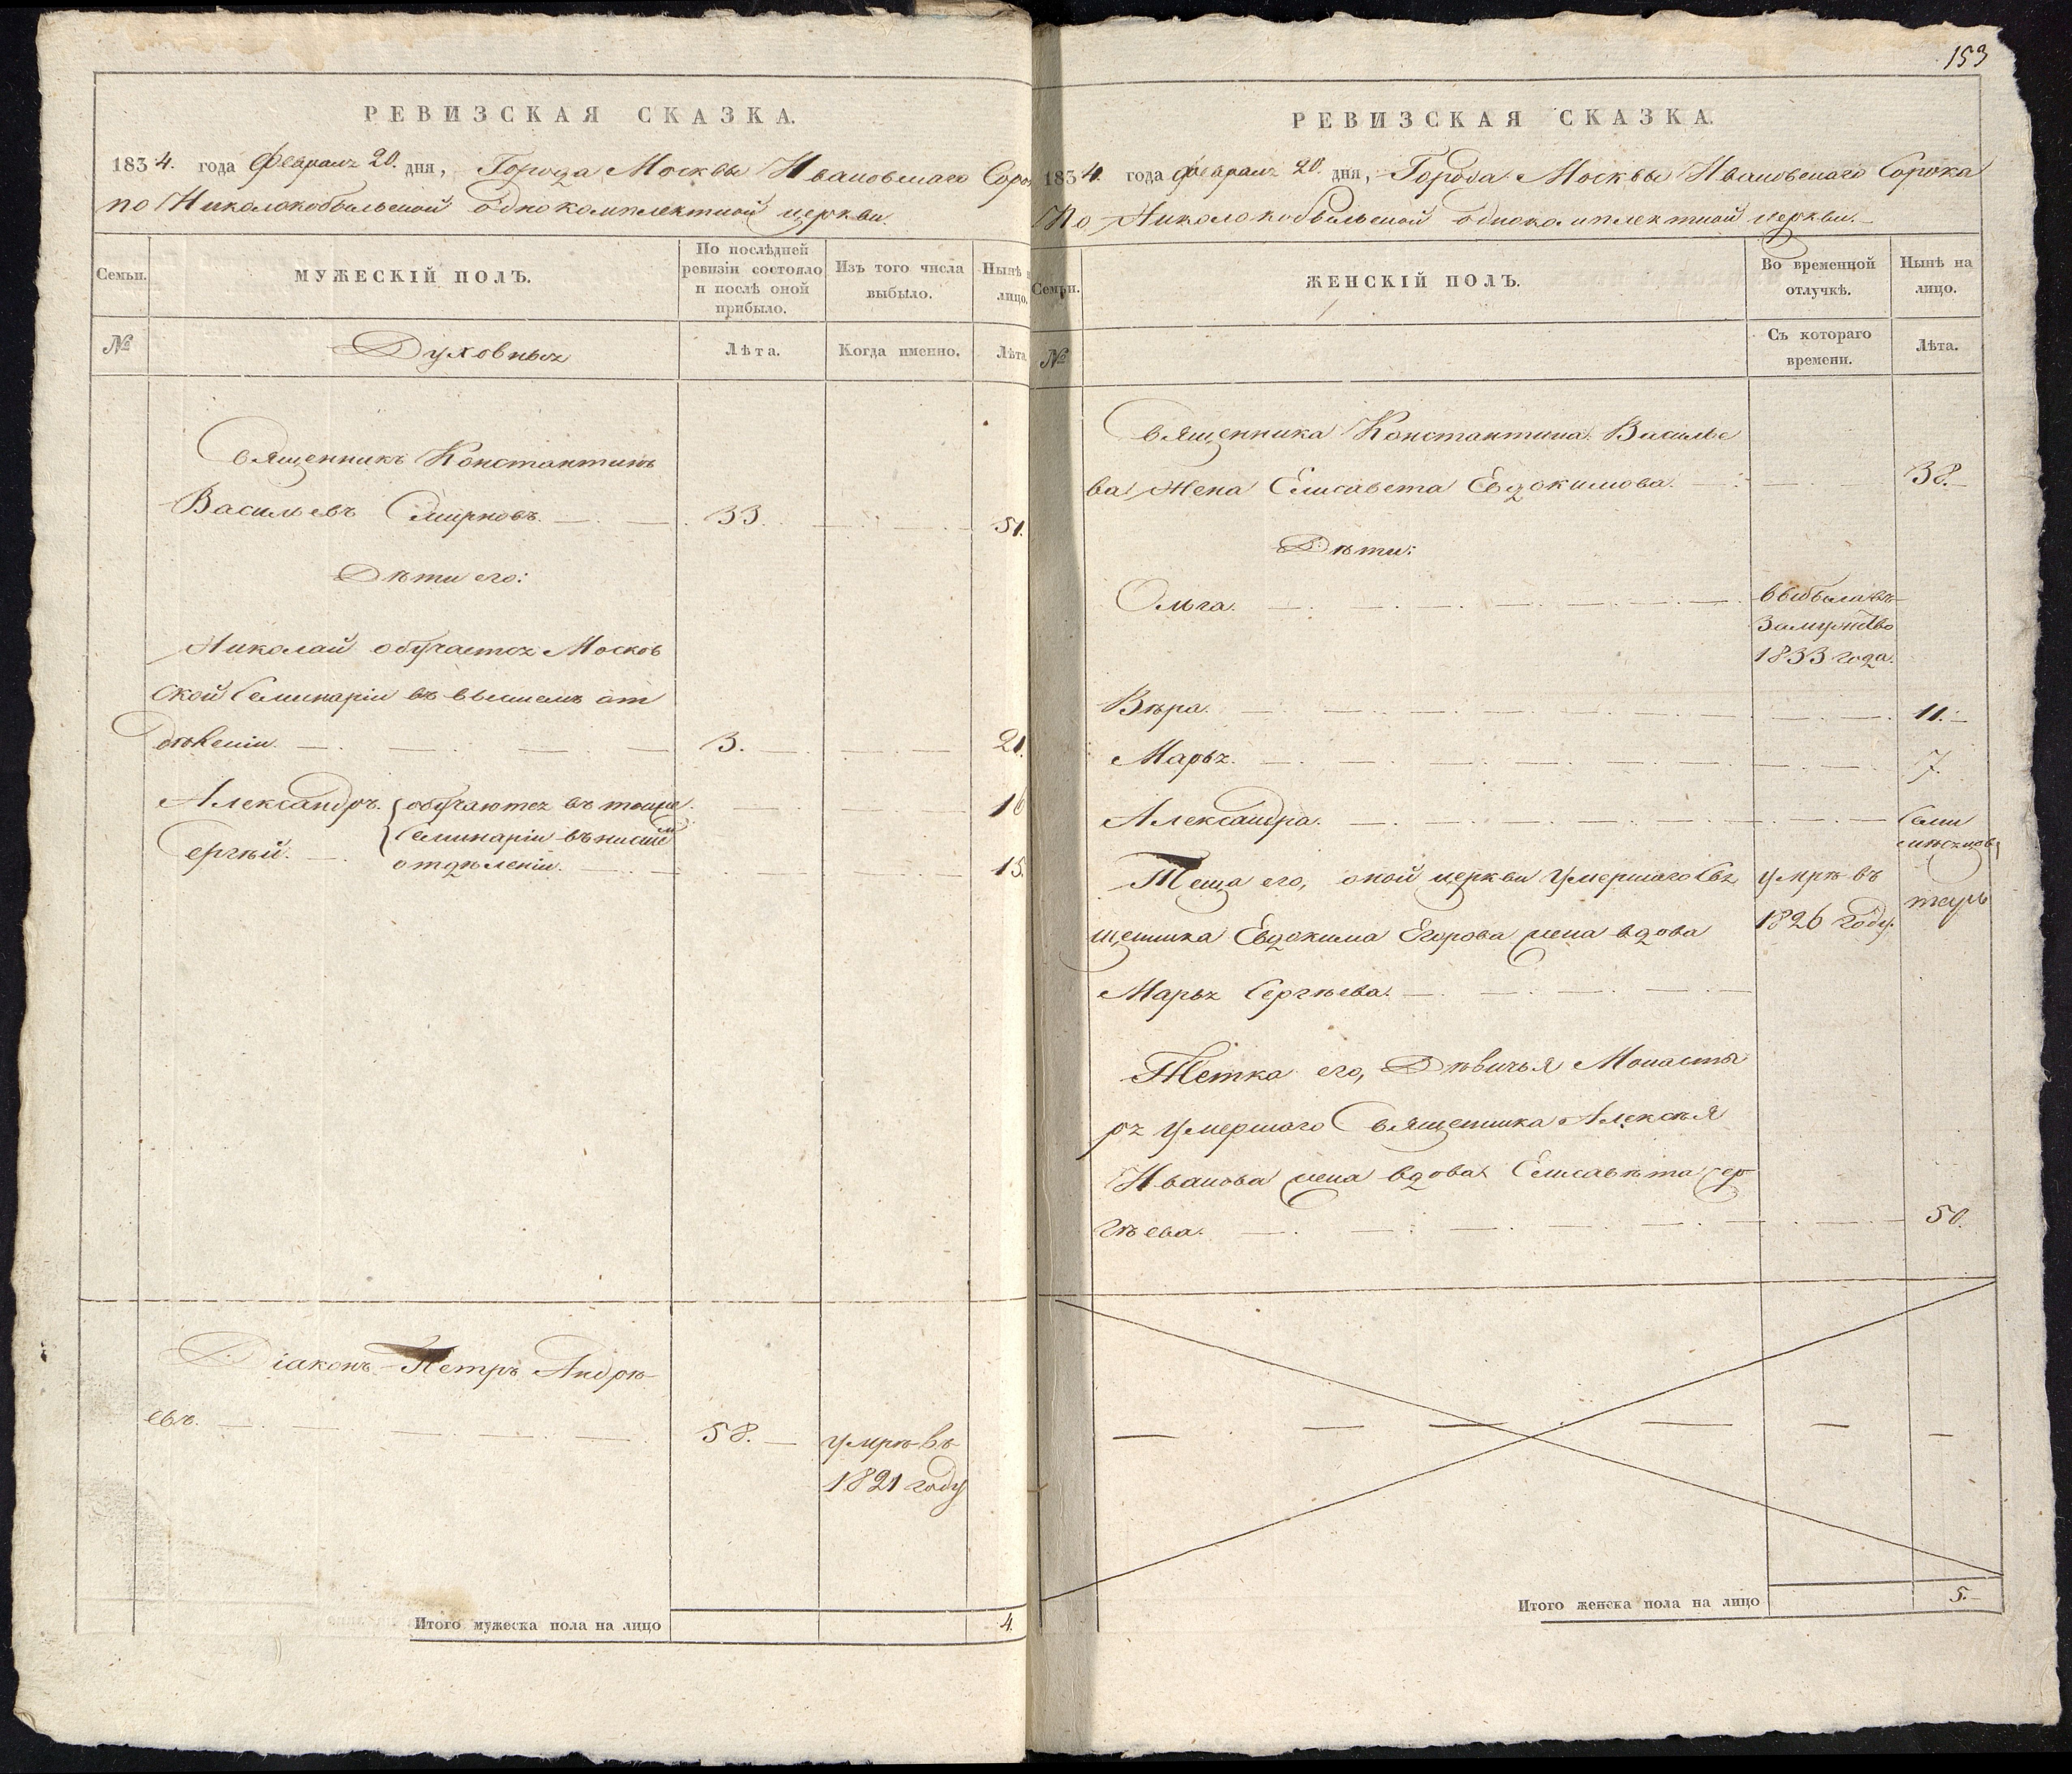 РЕВИЗСКАЯ СКАЗКА.
1834. года Февраля 20. дня, Города Москвы Ивановскаго Соро
по Николокобыльской однокомплектной церкви.
Семьи.
МУЖЕСКІЙ ПОЛЪ.
По послѣдней ревизіи состояло и послѣ оной прибыло.
Изъ того числа выбыло.
Нынѣ н лицо.
№
Духовныя
Лѣта.
Когда именно.
Лѣта
Священникъ Константинъ
Васильевъ Смирновъ. 33. 51.
Дѣти его:
Николай обучается Москов
ской Семинаріи въ высшемъ от
дѣленіи. 3. 21.
Александръ. обучаются въ тойже 16
Семинаріи въ нисшем
Сергѣй. отдѣленіи. 15.
Діаконъ Петръ Андрѣ
евъ. 58. умрѣ въ
1821 году
Итого мужеска пола на лицо 4.
153
РЕВИЗСКАЯ СКАЗКА.
1834. года Февраля 20. дня, Города Москвы Ивановскаго Сорока
По Николокобыльской однокомплектной церкви.
Семьи.
ЖЕНСКІЙ ПОЛЪ.
Во временной отлучкѣ.
Нынѣ на лицо.
№
Съ котораго времени.
Лѣта.
Священника Константина Василье
ва жена Елисавета Евдокимова. 38.
Дѣти:
Ольга. выбыла въ
замужство
1833 года.
Вѣра. 11.
Марья. 7.
Александра. Семи
мѣсяцовъ
Теща его, оной церкви умершаго Свя умрѣ въ
щенника Евдокима Егорова жена вдова 1826 году.
Марья Сергѣева.
Тетка его, Дѣвичья Монасты
ря умершаго Священника Алексѣя
Иванова жена вдова Елисавѣта Сер
гѣева. 50.
Итого женска пола на лицо 5.